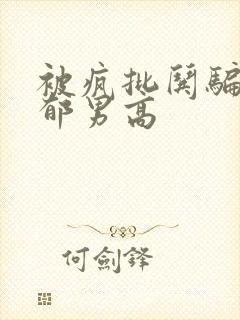 被疯批鬨騙
郁男高
何劍鋒